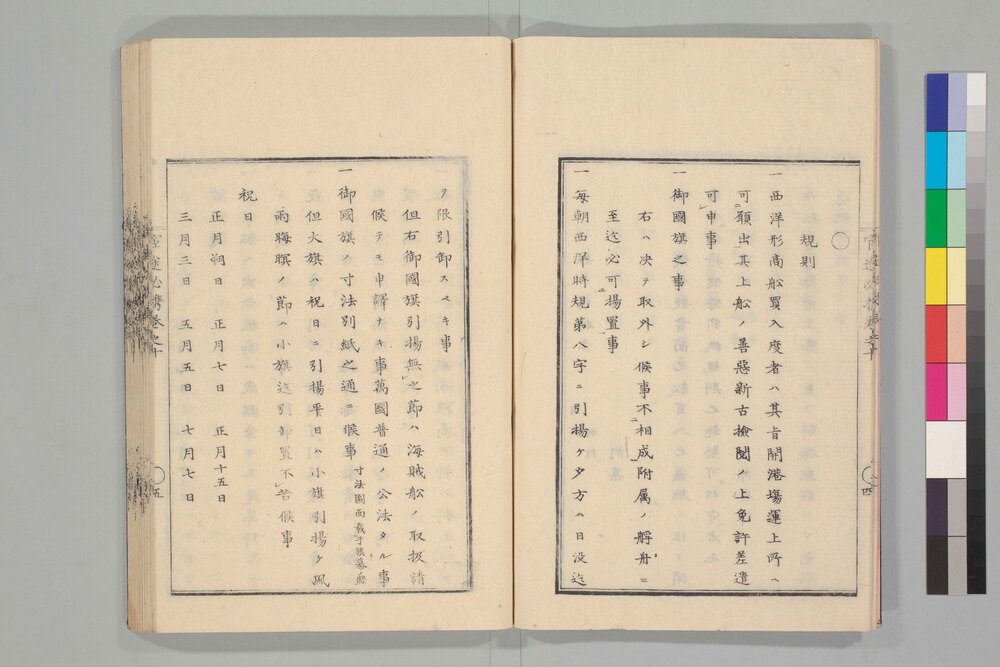 ○
規則
一西洋形商舩買入度者ハ其旨開港塲運上所ヘ
可願出其上舩ノ善惡新古撿閲ノ上免許差遣
可申事
一御國旗之事
右ハ决テ取外シ候事不相成附属ノ艀舟ニ
至迄必可揚置事
一每朝西洋時規第八字ニ引揚ケ夕方ハ日没迄
ヲ限引卸スヘキ事
但右御國旗引揚無之節ハ海賊舩ノ取扱請
候テモ申譯ナキ事萬國普通ノ公法タル事
一御國旗ノ寸法別紙之通ニ候事寸法圖面載于旗幕部
但大旗ハ祝日ニ引揚平日ハ小旗引揚ケ風
雨晦暝ノ節ハ小旗迄引卸置不苦候事
祝日
正月朔日 正月七日 正月十五日
三月三日 五月五日 七月七日
官途必携卷之十
○五